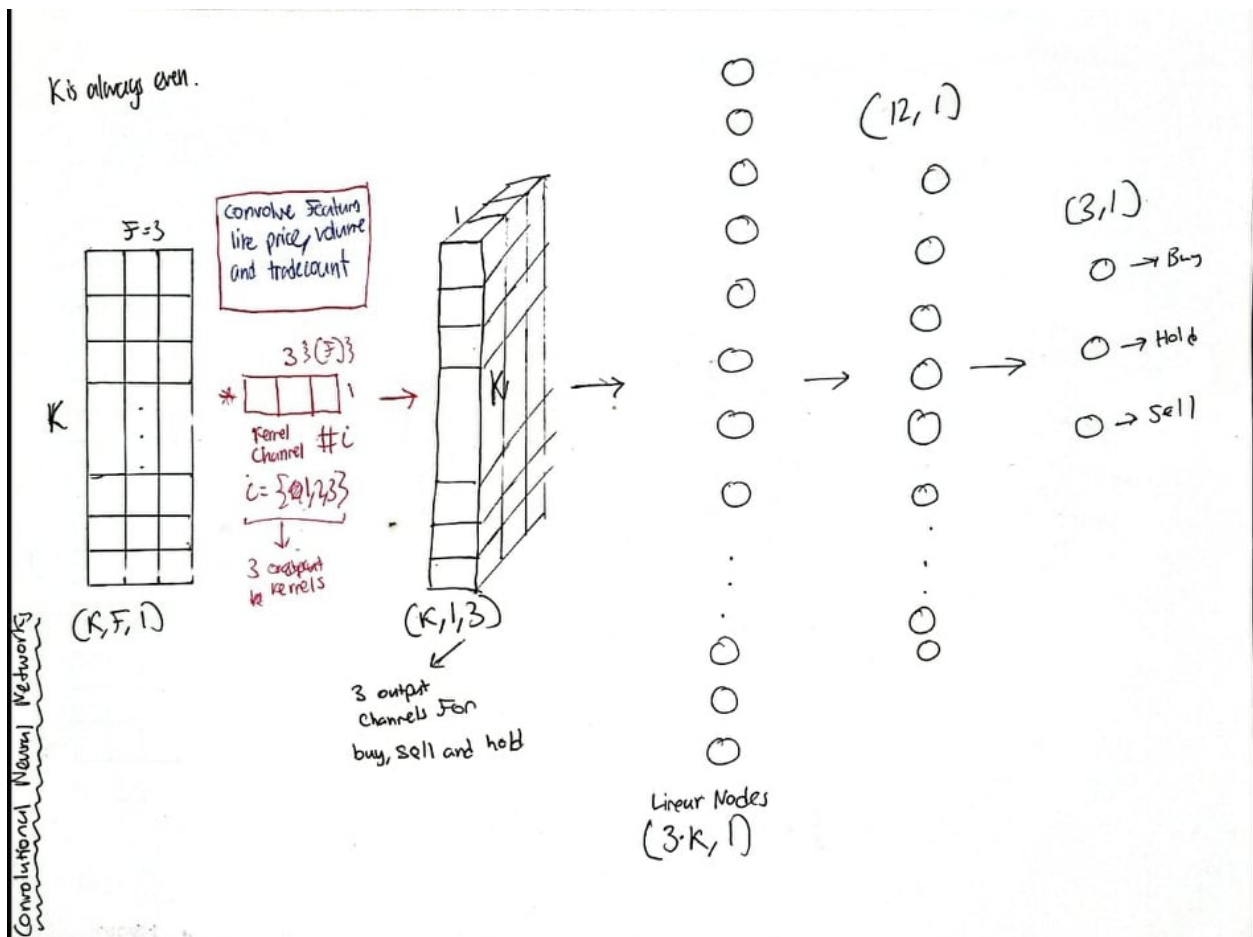 K is always even.
F=3
K
(K,F,1)
convolve Feature
like price, volume
and tradecount
3 }(F)}
*
1
Kernel
Channel #i
i={1,2,3}
3
kernels
1
K
(K,1,3)
3 output
channels For
buy, sell and hold
Linear Nodes
(3·K,1)
(12,1)
(3,1)
→ Buy
→ Hold
→ Sell
Convolutional Neural Networks